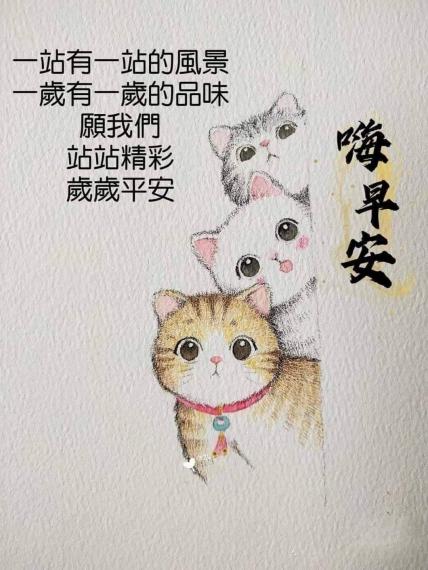 一站有一站的風景
一歲有一歲的品味
願我們
站站精彩
歲歲平安
嗨早安